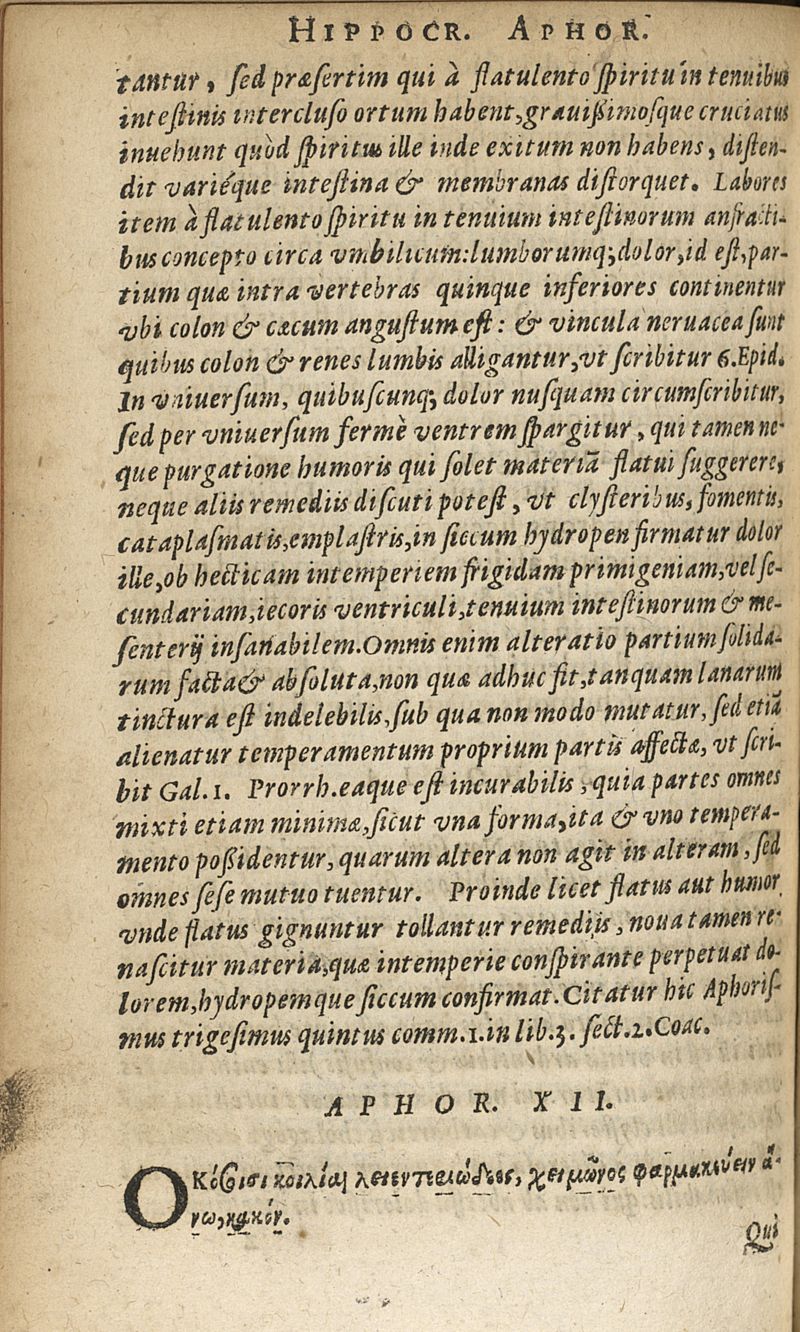 HIPPOCR. APHOR.
tantur, sed præsertim qui à flatulento spiritu in tenuibus
intestinis intercluso ortum habent, grauißimosque cruciatus
inuehunt quòd spiritus ille inde exitum non habens, disten-
dit variéque intestina & membranas distorquet. Labores
item à flatulento spiritu in tenuium intestinorum anfracti-
bus concepto circa vmbilicum: lumborumq; dolor, id est, par-
tium quæ intra vertebras quinque inferiores continentur
vbi colon & cæcum angustum est: & vincula neruacea sunt
quibus colon & renes lumbis alligantur, vt scribitur 6. Epid.
In vniuersum, quibuscunq; dolor nusquam circumscribitur,
sed per vniuersum fermè ventrem spargitur, qui tamen ne-
que purgatione humoris qui solet materiā flatui suggerere,
neque aliis remediis discuti potest, vt clysteribus, fomentis,
cataplasmatis, emplastris, in siccum hydropen firmatur dolor
ille, ob hecticam intemperiem frigidam primigeniam, vel se-
cundariam, iecoris ventriculi, tenuium intestinorum & me-
senterij insanabilem. Omnis enim alteratio partium solida-
rum facta & absoluta, non quæ adhuc fit, tanquam lanarum
tinctura est indelebilis, sub qua non modo mutatur, sed etiā
alienatur temperamentum proprium partis affectæ, vt scri-
bit Gal. 1. Prorrh. eaque est incurabilis, quia partes omnes
mixti etiam minimæ, sicut vna forma, ita & vno tempera-
mento poßidentur, quarum altera non agit in alteram, sed
omnes sese mutuo tuentur. Proinde licet flatus aut humor
vnde flatus gignuntur tollantur remediis, noua tamen re-
nascitur materia, quæ intemperie conspirante perpetuat do-
lorem, hydropemque siccum confirmat. Citatur hic Aphoris-
mus trigesimus quintus comm. 1. in lib. 3. sect. 2. Coac.
APHOR. XII.
Ὁκόϭισι κοιλίαι λειεντεριώδεες, χειμῶνος φαρμακεύειν ἄ-
νω, κακόν.
Qui